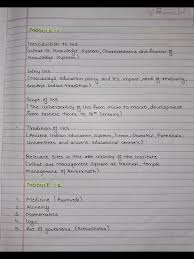 MODULE - 1
Introduction to IKS
(What is Knowledge System, Characteristics and of
Knowledge System)
Why IKS
(Macaulay's Education policy and its impact, need of revisiting
Ancient Indian Tradition)
Scope of IKS
(The Universality of IKS from micro to macro, development
from earliest times to 18th Century)
Tradition of IKS
(Ancient Indian Education System, Home, Gurukul, Pathshala,
Universities and ancient educational centres)
Relevant Sites in the vicinity of the Institute
(Water Management System at temple
management of Ambernath)
MODULE - 2
1. Medicine (Ayurveda)
2. Alchemy
3. Mathematics
4. Logic
5. Art of Governance (Arthashastra)